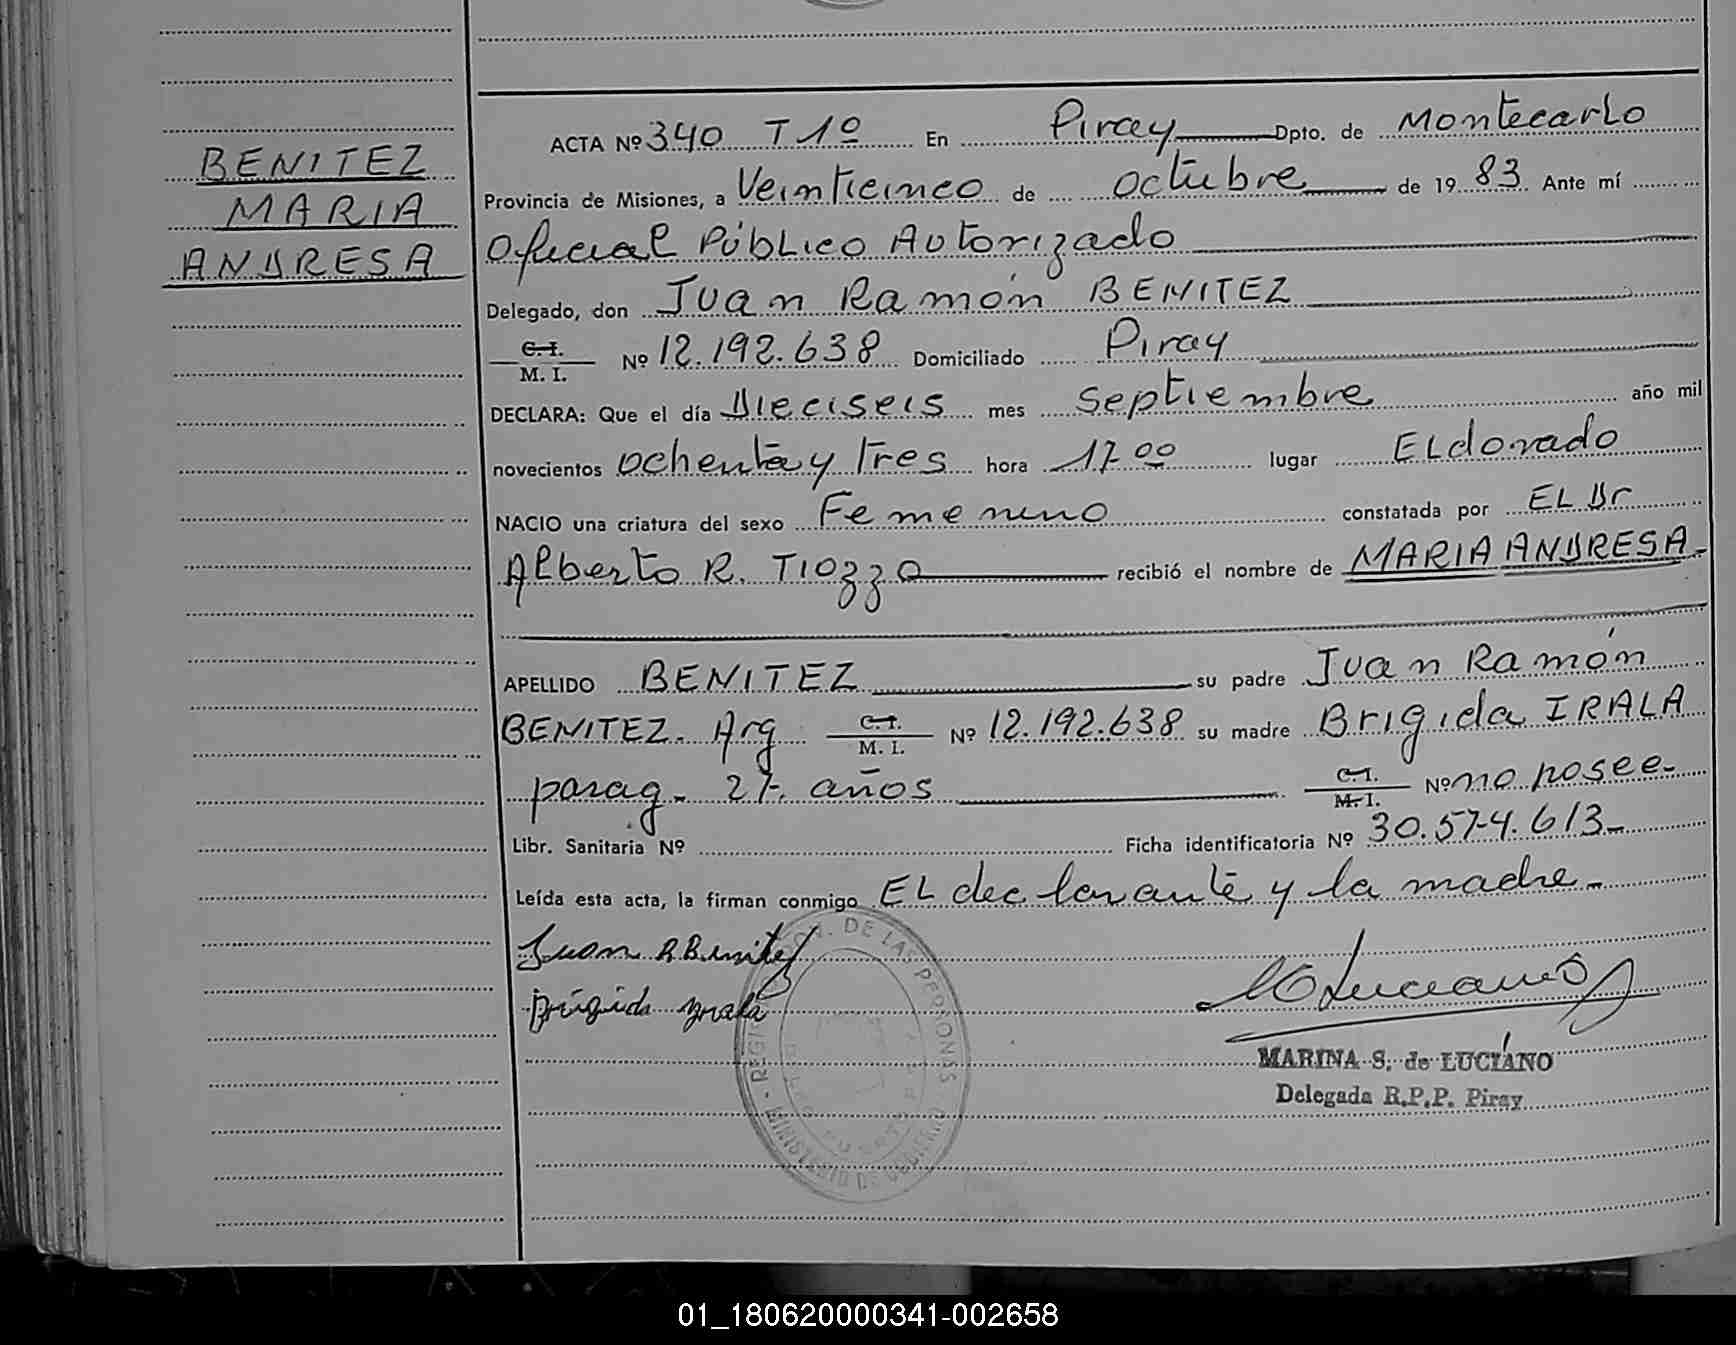 BENITEZ
MARIA
ANDRESA
ACTA Nº 340 T 1º En Piray Dpto. de Montecarlo
Provincia de Misiones, a Veinticinco de octubre de 19 83 Ante mí
Oficial Público Autorizado
Delegado, don Juan Ramón BENITEZ
C. I.
M. I. Nº 12.192.638 Domiciliado Piray
DECLARA: Que el día Dieciseis mes septiembre año mil
novecientos ochenta y Tres hora 17 00 lugar ELdorado
NACIO una criatura del sexo Femenino constatada por EL Dr
Alberto R. Tiozzo recibió el nombre de MARIA ANDRESA.
APELLIDO BENITEZ su padre Juan Ramón
BENITEZ. Arg C. I.
M. I. Nº 12.192.638 su madre Brigida IRALA
parag. 27. años C. I.
M. I. Nº no posee.
Libr. Sanitaria Nº Ficha identificatoria Nº 30.574.613.
Leída esta acta, la firman conmigo EL declarante y la madre.
Juan R Benitez
Brigida Irala
MARINA S. de LUCIANO
Delegada R.P.P. Piray
DE LAS PERSONAS
MINISTERIO DE GOBIERNO
01_180620000341-002658